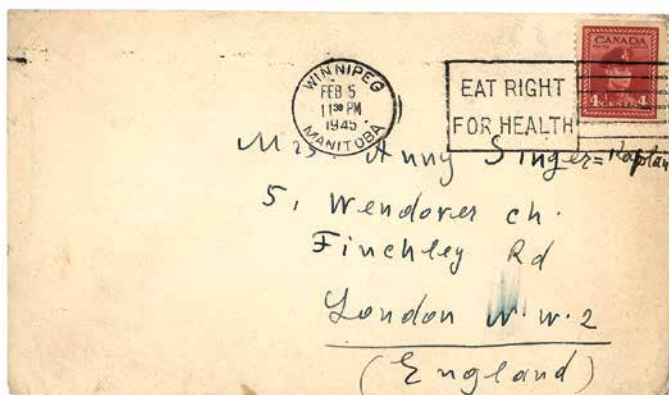 WINNIPEG
FEB 5
11 30 PM
1945
MANITOBA
EAT RIGHT
FOR HEALTH
CANADA
4 CENTS 4
Mrs. Anny Singer=Kaplan
5, Wendover ch.
Finchley Rd
London N.W.2
(England)